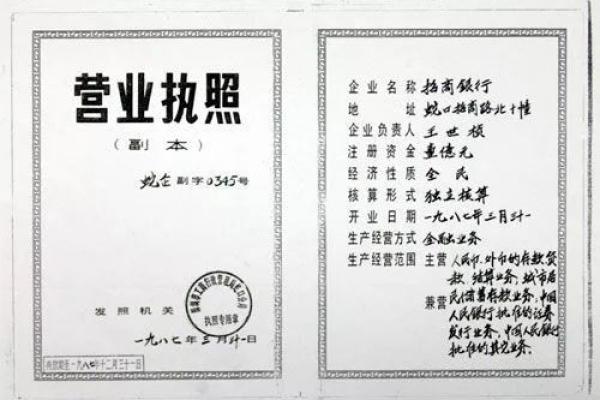 营业执照
(副本)
蛇企副字0345号
发照机关
执照专用章
一九八七年三月卅一日
有效期至一九八七年十二月三十一日
企业名称 招商銀行
地址 蛇口招商路北十幢
企业负责人 王世楨
注册资金 壹億元
经济性质 全民
核算形式 独立核算
开业日期 一九八七年三月卅一
生产经营方式 金融业务
生产经营范围 主营 人民币、外币的存款贷
款、结算业务、城市居
兼营 民储蓄存款业务;中国
人民银行批准的证券
发行业务、中国人民銀行
批准的其它业务。